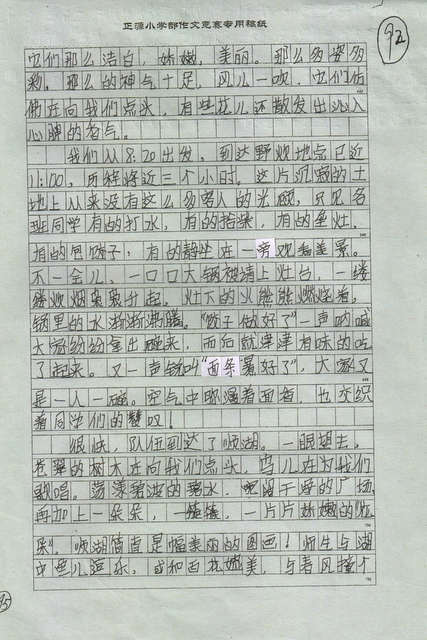 正源小学部作文竞赛专用稿纸
92
它们那么洁白,娇嫩,美丽。那么多姿多
彩,那么的神气十足,风儿一吹,它们仿
佛在向我们点头,有些花儿还散发出沁人
心脾的香气。
我们从8:20出发,到达野炊地点已近
11:00,历程将近三个小时。这片沉寂的土
地上从来没有这么多客人的光顾,只见各
班同学有的打水,有的拾柴,有的垒灶,
有的包饺子,有的静坐在一旁观看美景。
不一会儿,一口口大锅被请上灶台,一缕
缕炊烟袅袅升起,灶下的火熊熊燃烧着,
锅里的水渐渐沸腾。"饺子做好了"一声呐喊
大家纷纷拿出碗来,而后就津津有味的吃
了起来。又一声"面条煮好了",大家又
是一人一碗。空气中弥漫着面香,也交织
着同学们的赞叹!
很快,队伍到达了顺湖。一眼望去,
苍翠的树木在向我们点头,鸟儿在为我们
歌唱。荡漾碧波的湖水,宽阔干净的广场,
再加上一朵朵,一簇簇,一片片娇嫩的
顺湖简直是幅美丽的图画!师生与湖
中鱼儿逗乐,或和百花媲美,与春风撞个